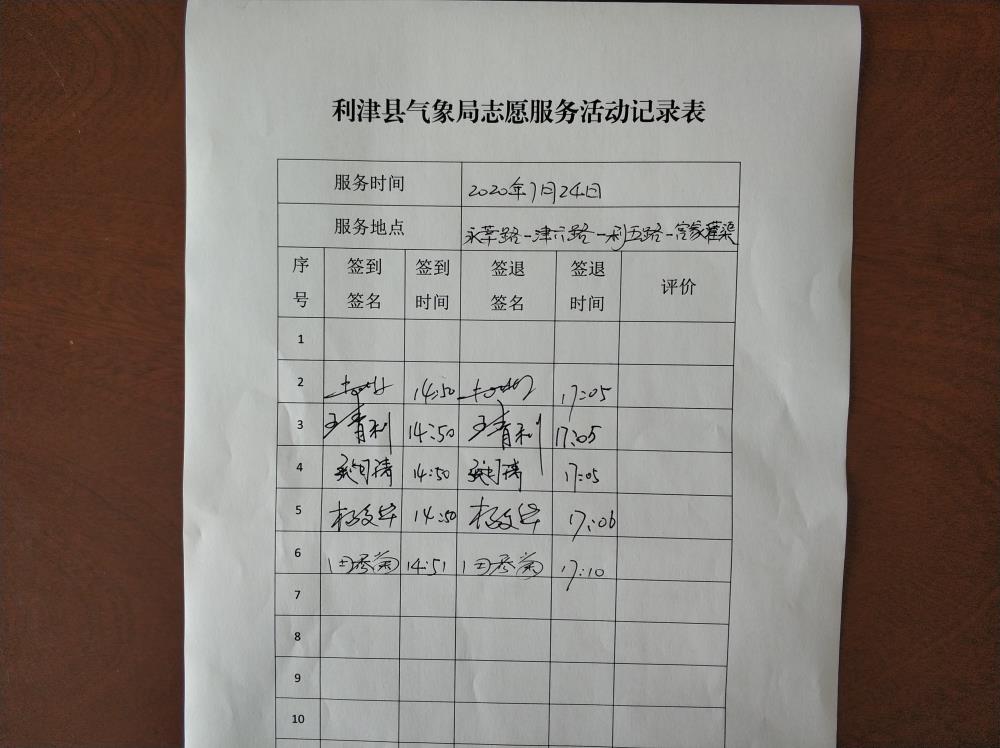 利津县气象局志愿服务活动记录表
服务时间 2020年7月24日
服务地点 永莘路-津六路-利五路-宫家灌渠
序号 签到签名 签到时间 签退签名 签退时间 评价
1
2 14:50 17:05
3 王青利 14:50 王青利 17:05
4 14:50 17:05
5 杨文华 14:50 杨文华 17:06
6 田秀菊 14:51 田秀菊 17:10
7
8
9
10